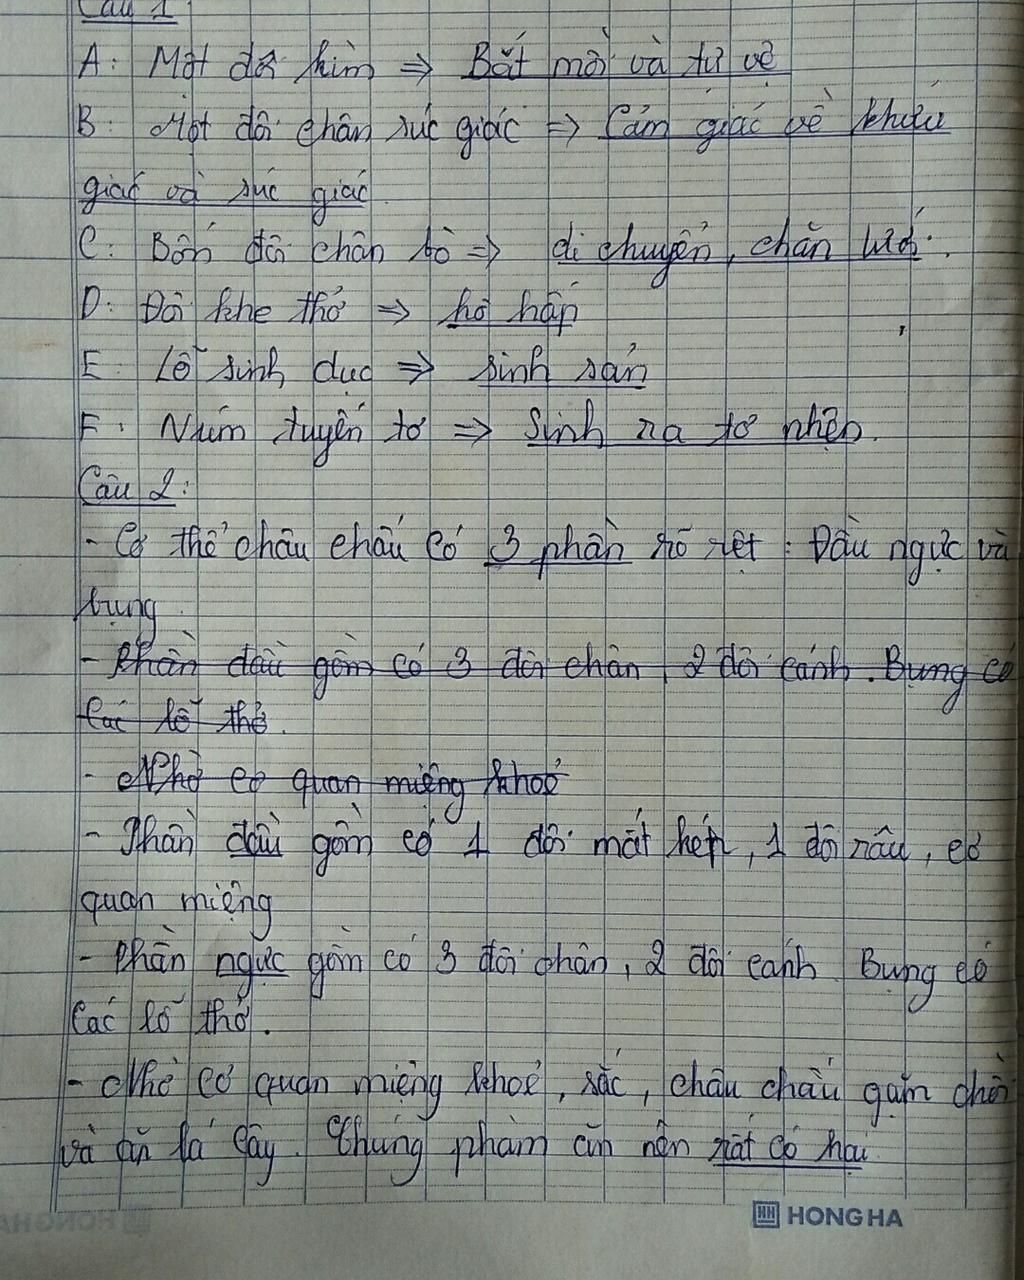 Câu 1
A: Một đôi kìm => Bắt mồi và tự vệ
B: Một đôi chân xúc giác => Cảm giác về khứu
giác và xúc giác
C: Bốn đôi chân bò => di chuyển, chăn lưới.
D: Đôi khe thở => hô hấp
E: Lỗ sinh dục => sinh sản
F: Núm tuyến tơ => Sinh ra tơ nhện.
Câu 2:
- Cơ thể châu chấu có 3 phần rõ rệt: Đầu ngực và
bụng.
- Phần đầu gồm có 3 đôi chân, 2 đôi cánh. Bụng có
các lỗ thở.
- Nhờ cơ quan miệng khoẻ
- Phần đầu gồm có 1 đôi mắt kép, 1 đôi râu, cơ
quan miệng
- Phần ngực gồm có 3 đôi chân, 2 đôi cánh. Bụng có
các lỗ thở.
- Nhờ cơ quan miệng khoẻ, sắc, châu chấu gặm chồi
và ăn lá cây. Chúng phàm ăn nên rất có hại.
HONG HA